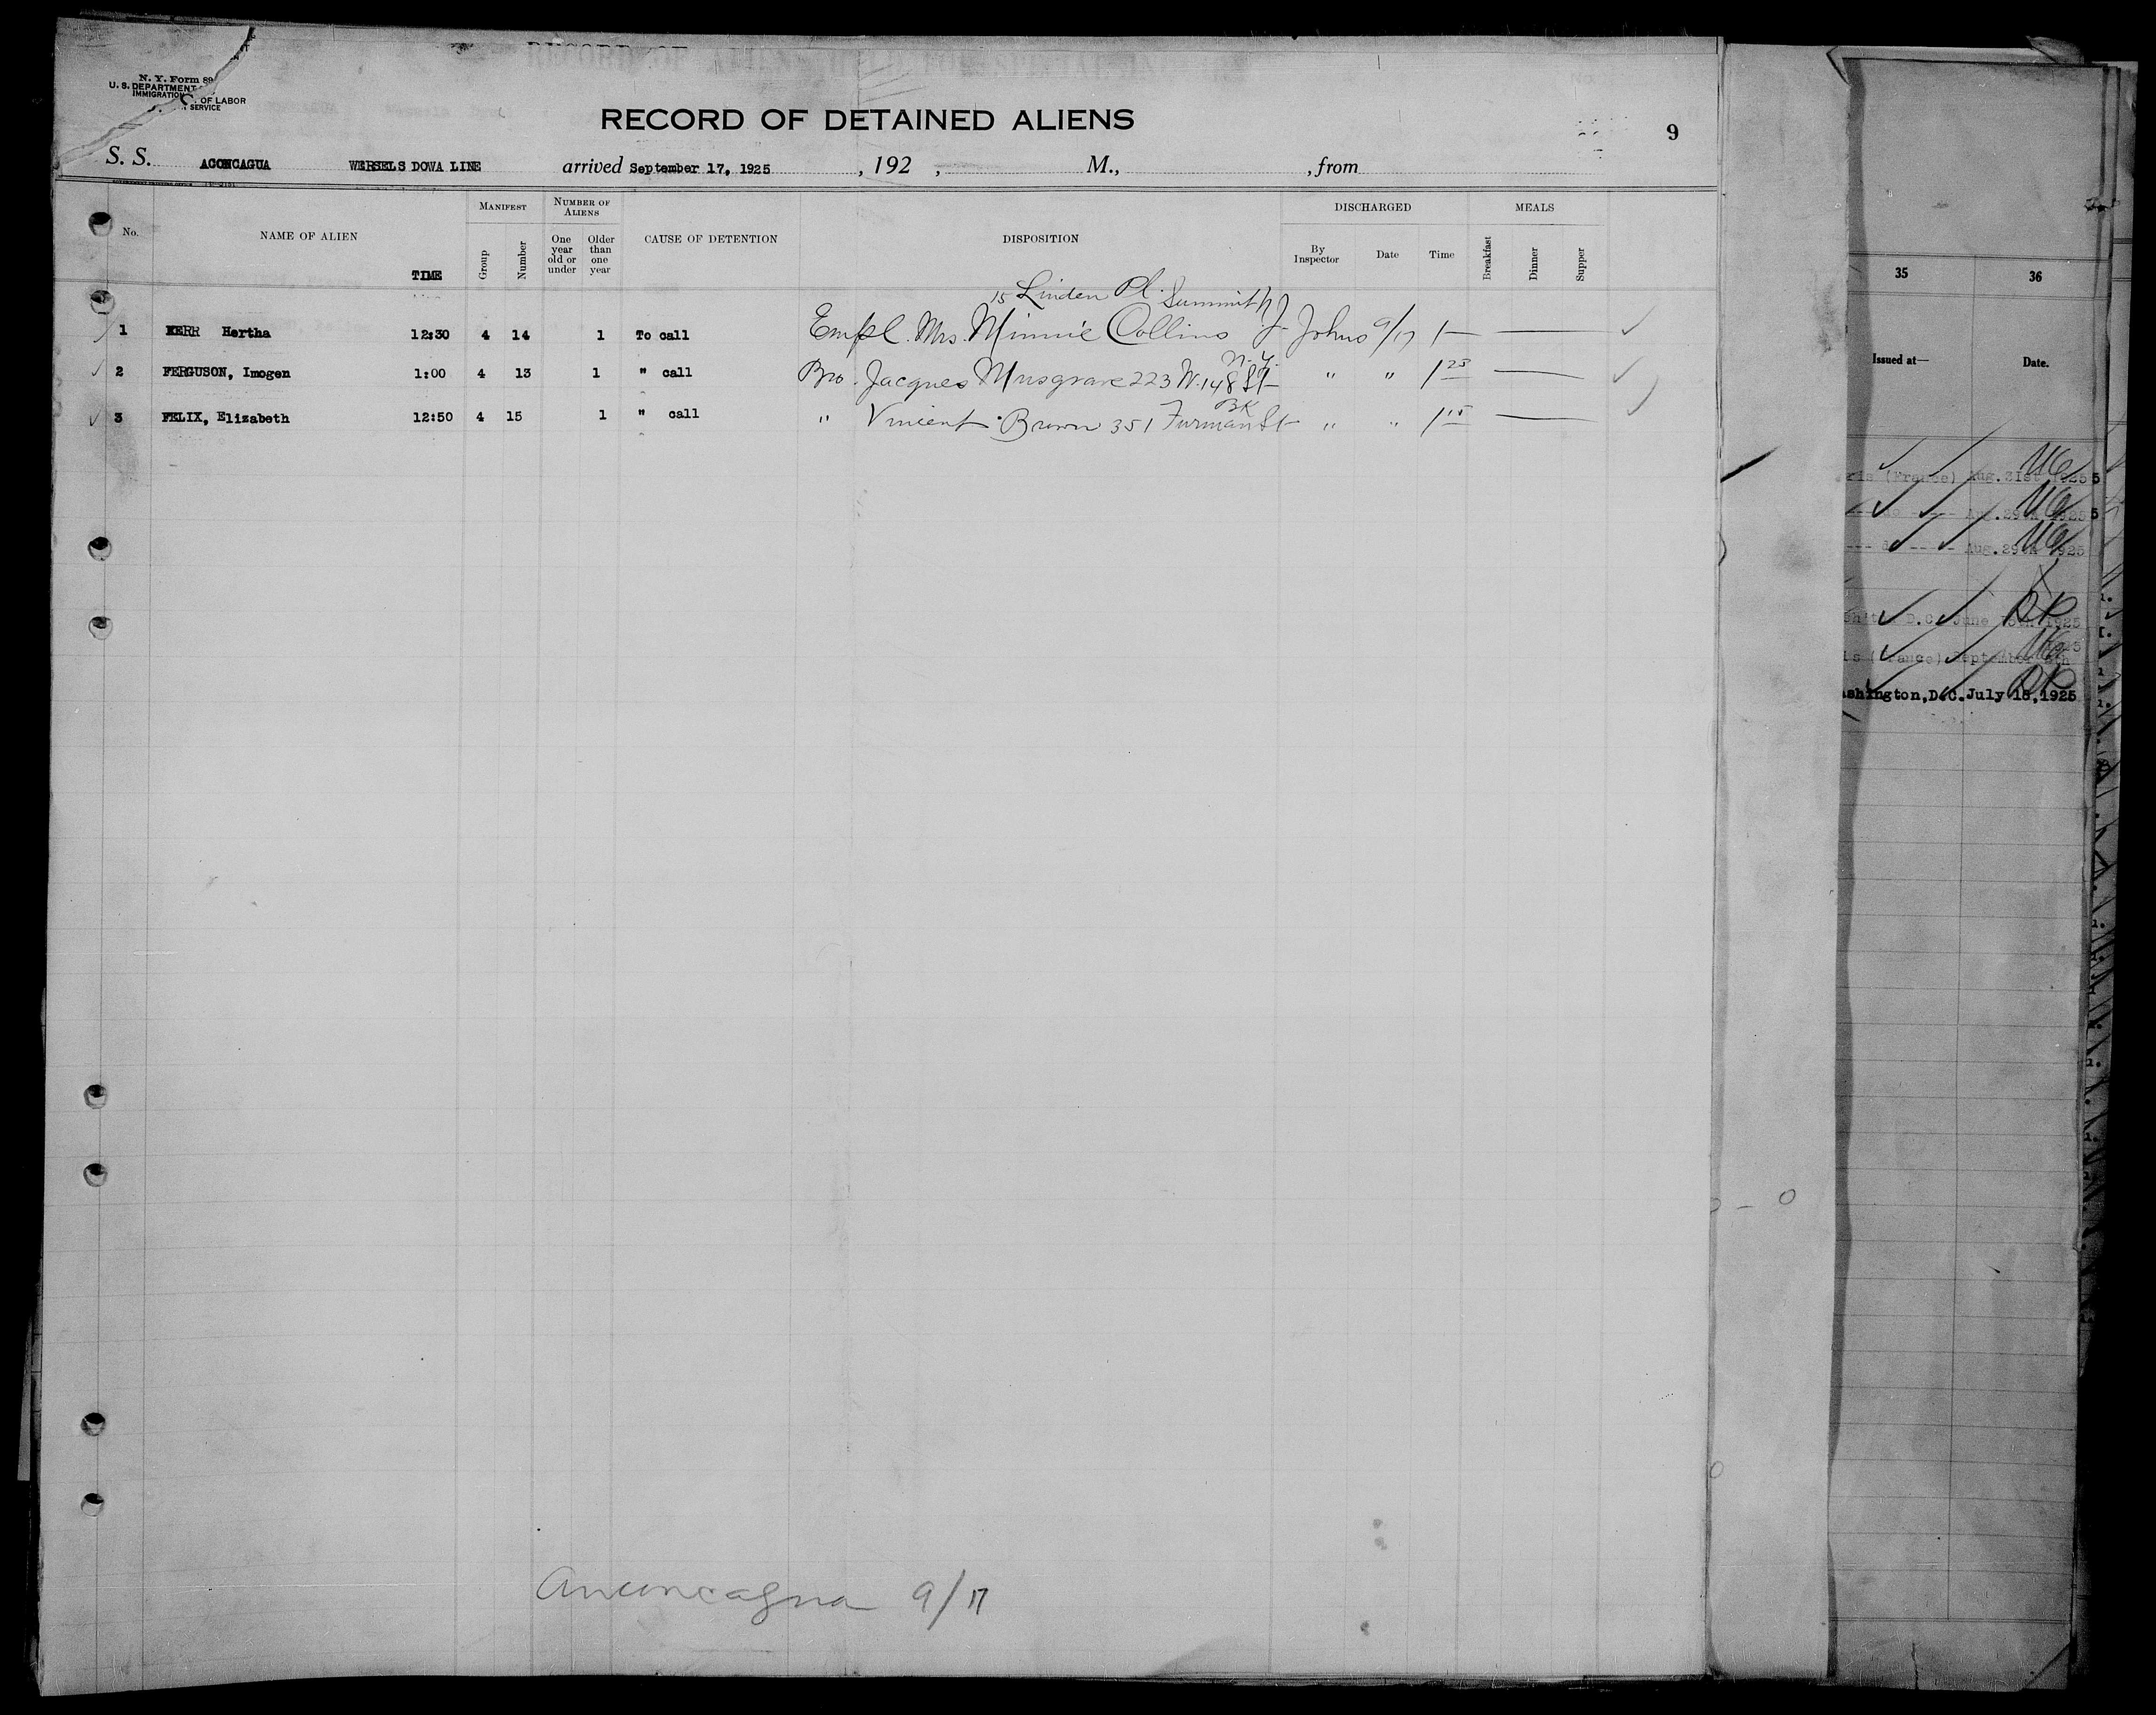 N. Y. Form 89
U. S. DEPARTMENT OF LABOR
IMMIGRATION SERVICE
RECORD OF DETAINED ALIENS
9
S. S. ACONCAGUA WERSELS DOWA LINE arrived September 17, 1925 , 192 , M., , from
No. NAME OF ALIEN TIME MANIFEST Group Number NUMBER OF ALIENS One year old or under Older than one year CAUSE OF DETENTION DISPOSITION DISCHARGED By Inspector Date Time MEALS Breakfast Dinner Supper
15 Linden Pl. Summit N J
1 KERR Hertha 12:30 4 14 1 To call Empl. Mrs. Minnie Collins Johns 9/17 1—
N. Y.
2 FERGUSON, Imogen 1:00 4 13 1 " call Bro. Jacques Musgrave 223 W. 148 St " " 1 25
BK
3 FELIX, Elizabeth 12:50 4 15 1 " call " Vincent Brown 351 Furman St " " 1 15
Anconcagua 9/17
35 36
Issued at— Date.
(France) Aug. 31st 1925
Aug. 29th 1925
--- do ---- Aug. 29th 1925
D.C. June 1925
(France) September
ashington, D.C. July 18, 1925